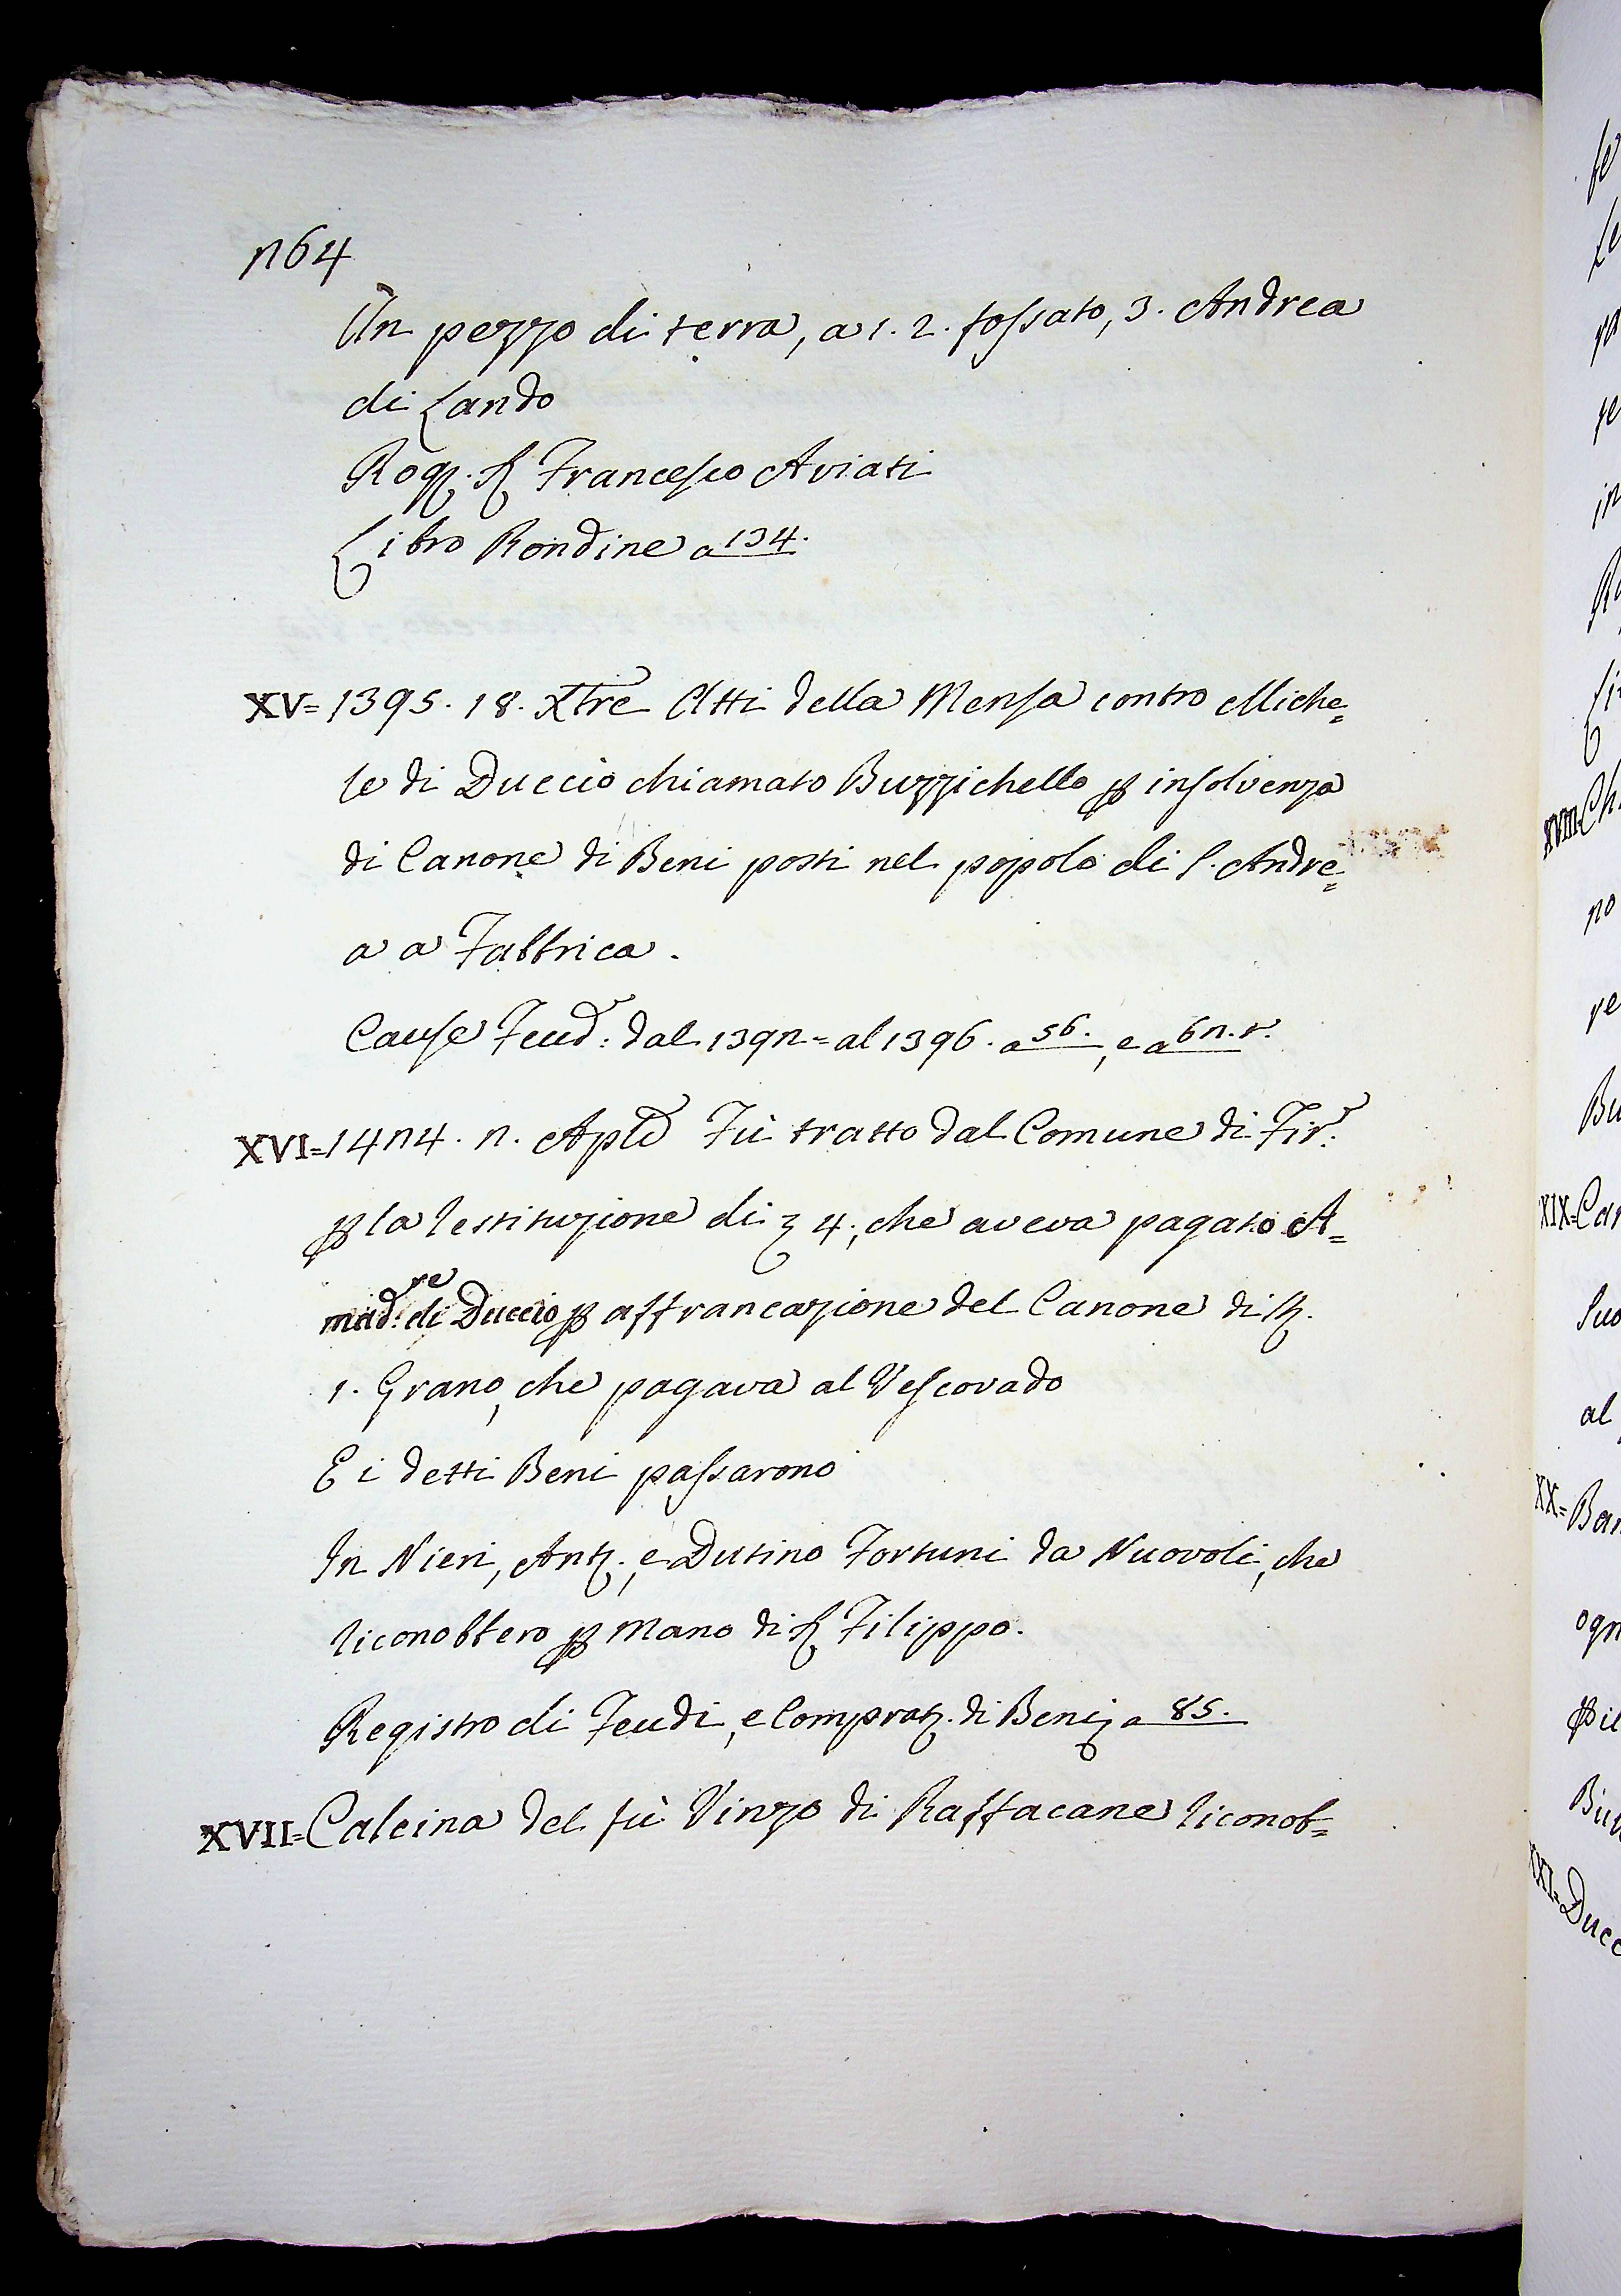 264
Un pezzo di terra, a 1. 2. fossato, 3. Andrea
di Lando
Rog. S. Francesco Aviati
Libro Rondine a 134.
XV= 1395. 18. Xbre Atti della Mensa contro Miche=
le di Duccio chiamato Buzzichello p insolvenza
di Canone di Beni posti nel popolo di S. Andre=
a a Fabbrica.
Cause Feud: dal 1392= al 1396. a 56., e a 62. r.
XVI= 1424. 2. Aple Fù tratto dal Comune di Fir:
p la restituzione di 4; che aveva pagato A=
mad:re di Duccio p affrancazione del Canone di st.
1. Grano, che pagava al Vescovado
E i detti Beni passarono
In Nieri, Ant., e Dutino Fortuni da Nuovoli, che
riconobbero p mano di S. Filippo.
Registro di Feudi, e Comprat. di Beni, a 85.
XVII= Calcina del fù Vinzo di Raffacane riconob=